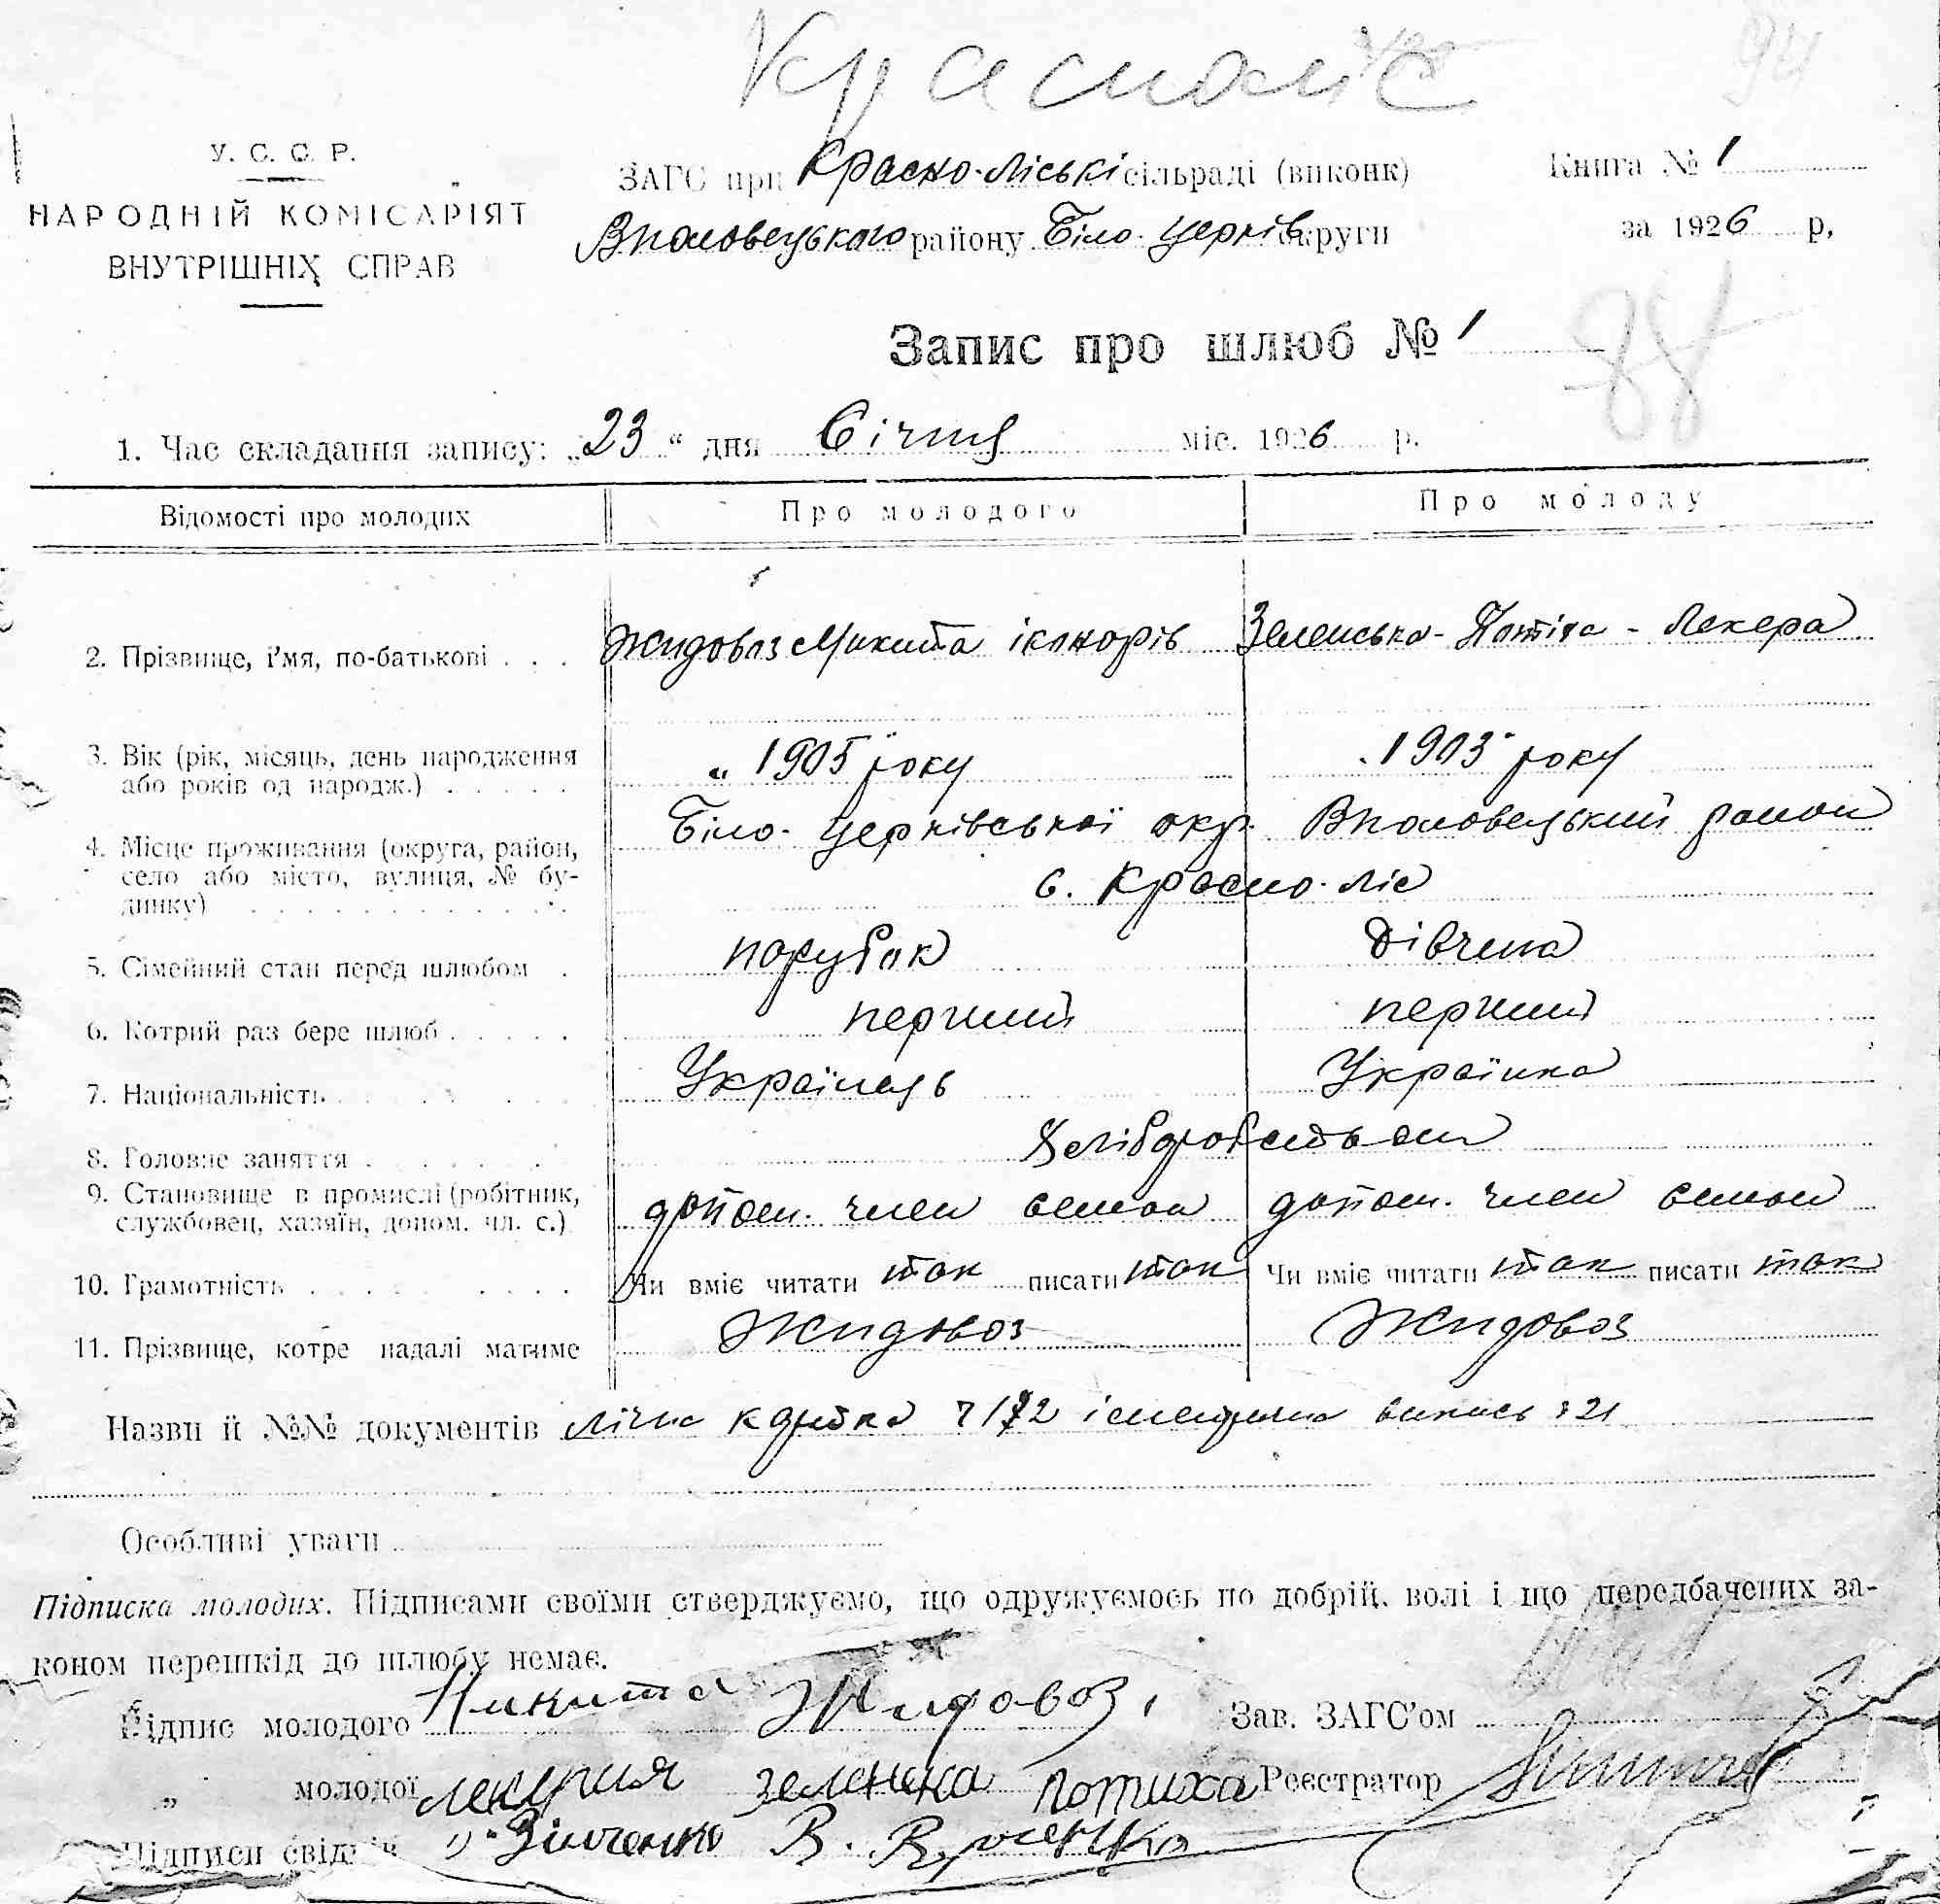 Красноліс
94
У. С. С. Р.
НАРОДНІЙ КОМІСАРІЯТ
ВНУТРІШНІХ СПРАВ
ЗАГС при Красно-ліські сільраді (виконк)
Книга № 1
районну Біло-церків округи
за 1926 р,
Запис про шлюб № 1
88
1. Час складання запису: „23“ дня Січня міс. 1926 р.
Відомості про молодих Про молодого Про молоду
2. Прізвище, і'мя, по-батькові . . . Жидовоз Микита іканорів Зеленська-Потіха-Лекера
3. Вік (рік, місяць, день народження
або років од народж.) . . . . . „ 1905 року 1903 року
Біло-церківської окр. район
4. Місце проживання (округа, район,
село або місто, вулиця, № бу-
динку) . . . с. Красно-ліс
5. Сімейний стан перед шлюбом . порубок Дівчена
6. Котрий раз бере шлюб . . . . . перший перший
7. Національність Українець Українка
8. Головне заняття . . . . Хліборобством
9. Становище в промислі (робітник,
службовец, хазяїн, допом. чл. с.) допом. член семьи допом. член семьи
10. Грамотність . . . . Чи вміє читати так писати так Чи вміє читати так писати так
11. Прізвище, котре надалі матиме Жидовоз Жидовоз
Назви й №№ документів лічна картка випись 21
Особливі уваги
Підписка молодих. Підписами своїми стверджуємо, що одружуємось по добрій волі і що передбачених за-
коном перешкід до шлюбу немає.
Підпис молодого Никита Жидовоз Зав. ЗАГС'ом
„ молодої Зеленска Потиха Реєстратор
Підписи свідків 1) Зінченко В.